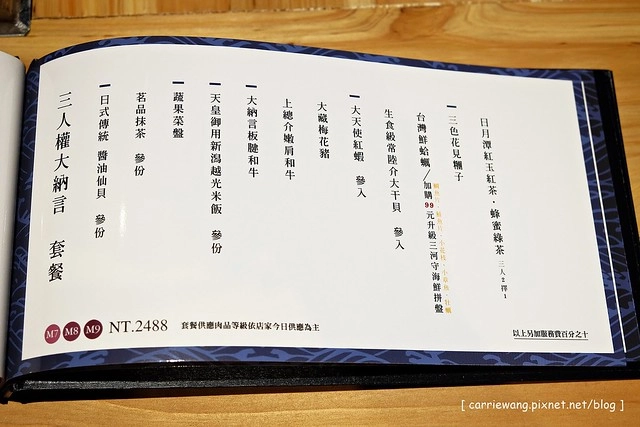 日月潭紅玉紅茶・蜂蜜綠茶 三人2擇1
三色花見糰子
台灣鮮蛤蠣/加購99元升級三河守海鮮拼盤
生食級常陸介大干貝 參入
大天使紅蝦 參入
大藏梅花豬
上總介嫩肩和牛
大納言板腱和牛
天皇御用新潟越光米飯 參份
蔬果菜盤
茗品抹茶 參份
日式傳統 醬油仙貝 參份
三人權大納言 套餐
M7 M8 M9 NT.2488 套餐供應肉品等級依店家今日供應為主
以上另加服務費百分之十
[ carriewang.pixnet.net/blog ]